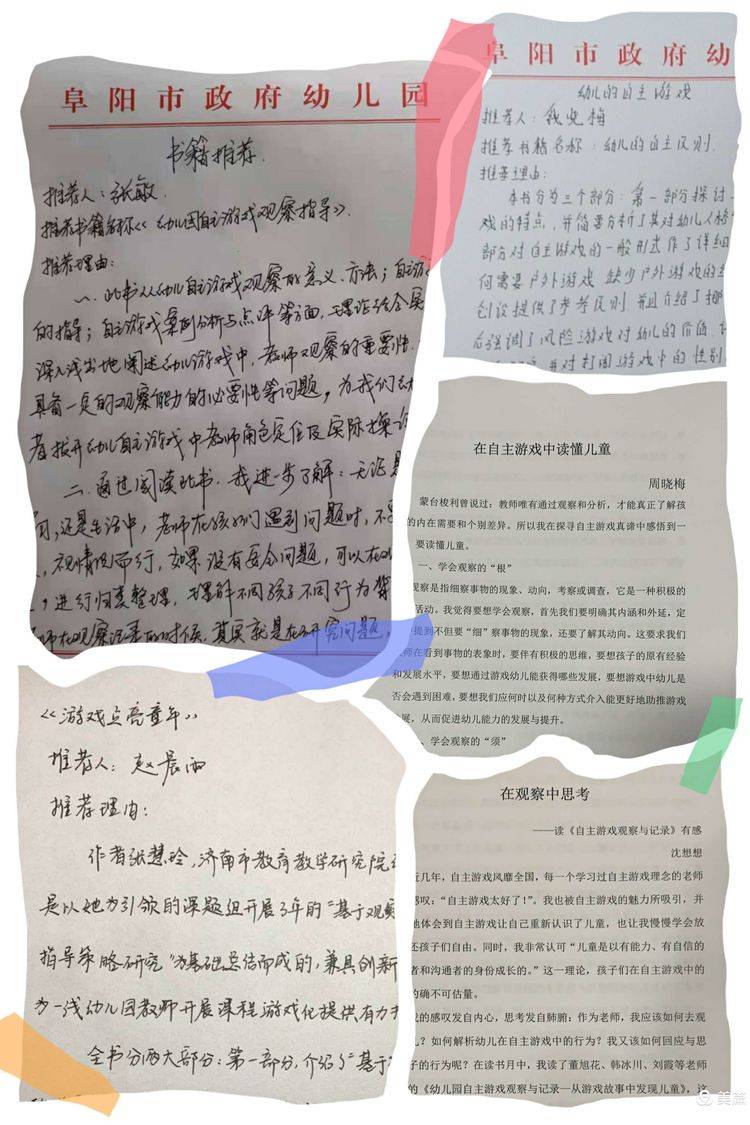 阜阳市政府幼儿园
书籍推荐
推荐人:张敏
推荐书籍名称《幼儿园自主游戏观察指导》
推荐理由:
一、此书从幼儿自主游戏观察的意义、方法;自主游
的指导;自主游戏案例分析与点评等方面,理论结合实
深入浅出地阐述幼儿游戏中,教师观察的重要性
具备一定的观察能力的必要性等问题,为我们
者拨开幼儿自主游戏中教师角色定位及实际操
二、通过阅读此书,我进一步了解:无论是
还是生活中,老师在孩子们遇到问题时,不要
视情况而行,如果没有安全问题,可以在
,进行归类整理,理解不同孩子不同行为背
师在观察记录的时候,其实就是在研究问题,
阜阳市政府幼
幼儿的自主游戏
推荐人:钱晓梅
推荐书籍名称:幼儿的自主原则
推荐理由:
本书分为三个部分:第一部分探讨
戏的特点,并简要分析了其对幼儿人格
部分对自主游戏的一般形式作了详细
何需要户外游戏 缺少户外游戏的
创设提供了参考原则 并且介绍了
后强调了风险游戏对幼儿的价值
并对打闹游戏中的性别
在自主游戏中读懂儿童
周晓梅
蒙台梭利曾说过:教师唯有通过观察和分析,才能真正了解孩
的内在需要和个别差异。所以我在探寻自主游戏真谛中感悟到一
要读懂儿童。
一、学会观察的“根”
观察是指细察事物的现象、动向,考察或调查,它是一种积极的
活动。我觉得要想学会观察,首先我们要明确其内涵和外延,定
提到不但要“细”察事物的现象,还要了解其动向。这要求我们
师在看到事物的表象时,要伴有积极的思维,要想孩子的原有经验
和发展水平,要想通过游戏幼儿能获得哪些发展,要想游戏中幼儿是
否会遇到困难,要想我们应何时以及何种方式介入能更好地助推游戏
展,从而促进幼儿能力的发展与提升。
、学会观察的“须”
《游戏点亮童年》
推荐人:赵晨雨
推荐理由:
作者张慧玲,济南市教育教学研究院
是以她为引领的课题组开展3年的“基于观察
指导策略研究”为基础总结而成的,兼具创新
为一线幼儿园教师开展课程游戏化提供有力
全书分两大部分:第一部分,介绍了“基于
在观察中思考
——读《自主游戏观察与记录》有感
沈想想
近几年,自主游戏风靡全国,每一个学习过自主游戏理念的老师
感叹:“自主游戏太好了!”。我也被自主游戏的魅力所吸引,并
地体会到自主游戏让自己重新认识了儿童,也让我慢慢学会放
还孩子们自由。同时,我非常认可“儿童是以有能力、有自信的
者和沟通者的身份成长的。”这一理论,孩子们在自主游戏中的
的确不可估量。
的感叹发自内心,思考发自肺腑:作为老师,我应该如何去观
儿?如何解析幼儿在自主游戏中的行为?我又该如何回应与思
子的行为呢?在读书月中,我读了董旭花、韩冰川、刘霞等老师
的《幼儿园自主游戏观察与记录—从游戏故事中发现儿童》,这
美篇